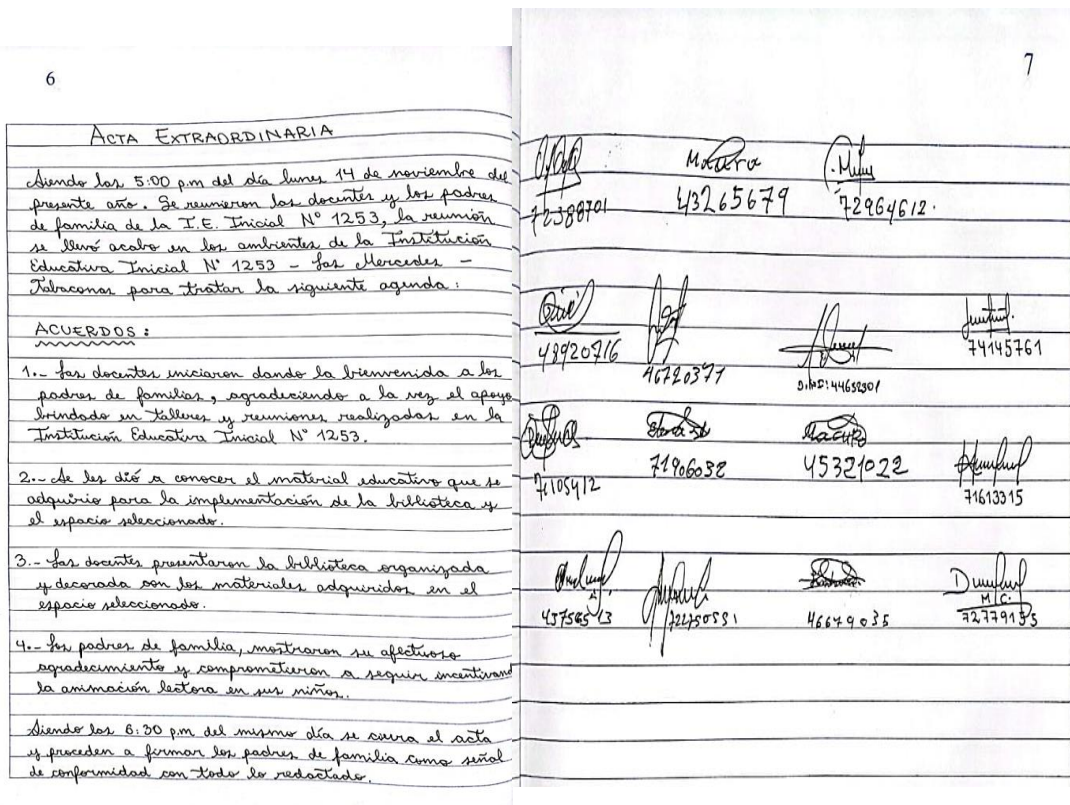 6
ACTA EXTRAORDINARIA
Siendo las 5:00 p.m del día lunes 14 de noviembre del
presente año. Se reunieron las docentes y los padres
de familia de la I.E. Inicial N° 1253, la reunión
se llevó acabo en los ambientes de la Institución
Educativa Inicial N° 1253 - Las Mercedes -
Tabaconas para tratar la siguiente agenda:
ACUERDOS:
1.- Las docentes iniciaron dando la bienvenida a los
padres de familias, agradeciendo a la vez el apoyo
brindado en talleres y reuniones realizadas en la
Institución Educativa Inicial N° 1253.
2.- Se les dió a conocer el material educativo que se
adquirio para la implementación de la biblioteca y
el espacio seleccionado.
3.- Las docentes presentaron la biblioteca organizada
y decorada con los materiales adquiridos en el
espacio seleccionado.
4.- Los padres de familia, mostraron su afectivoso
agradecimiento y comprometieron a seguir incentivand
la animación lectora en sus niños.
Siendo las 6:30 p.m del mismo día se cierra el acta
y proceden a firmar los padres de familia como señal
de conformidad con todo lo redactado.
7
72388701 43265679 72964612.
48920716 46720371 74145761
71906032 45321022 71613315
46679035
M. C.
72779135